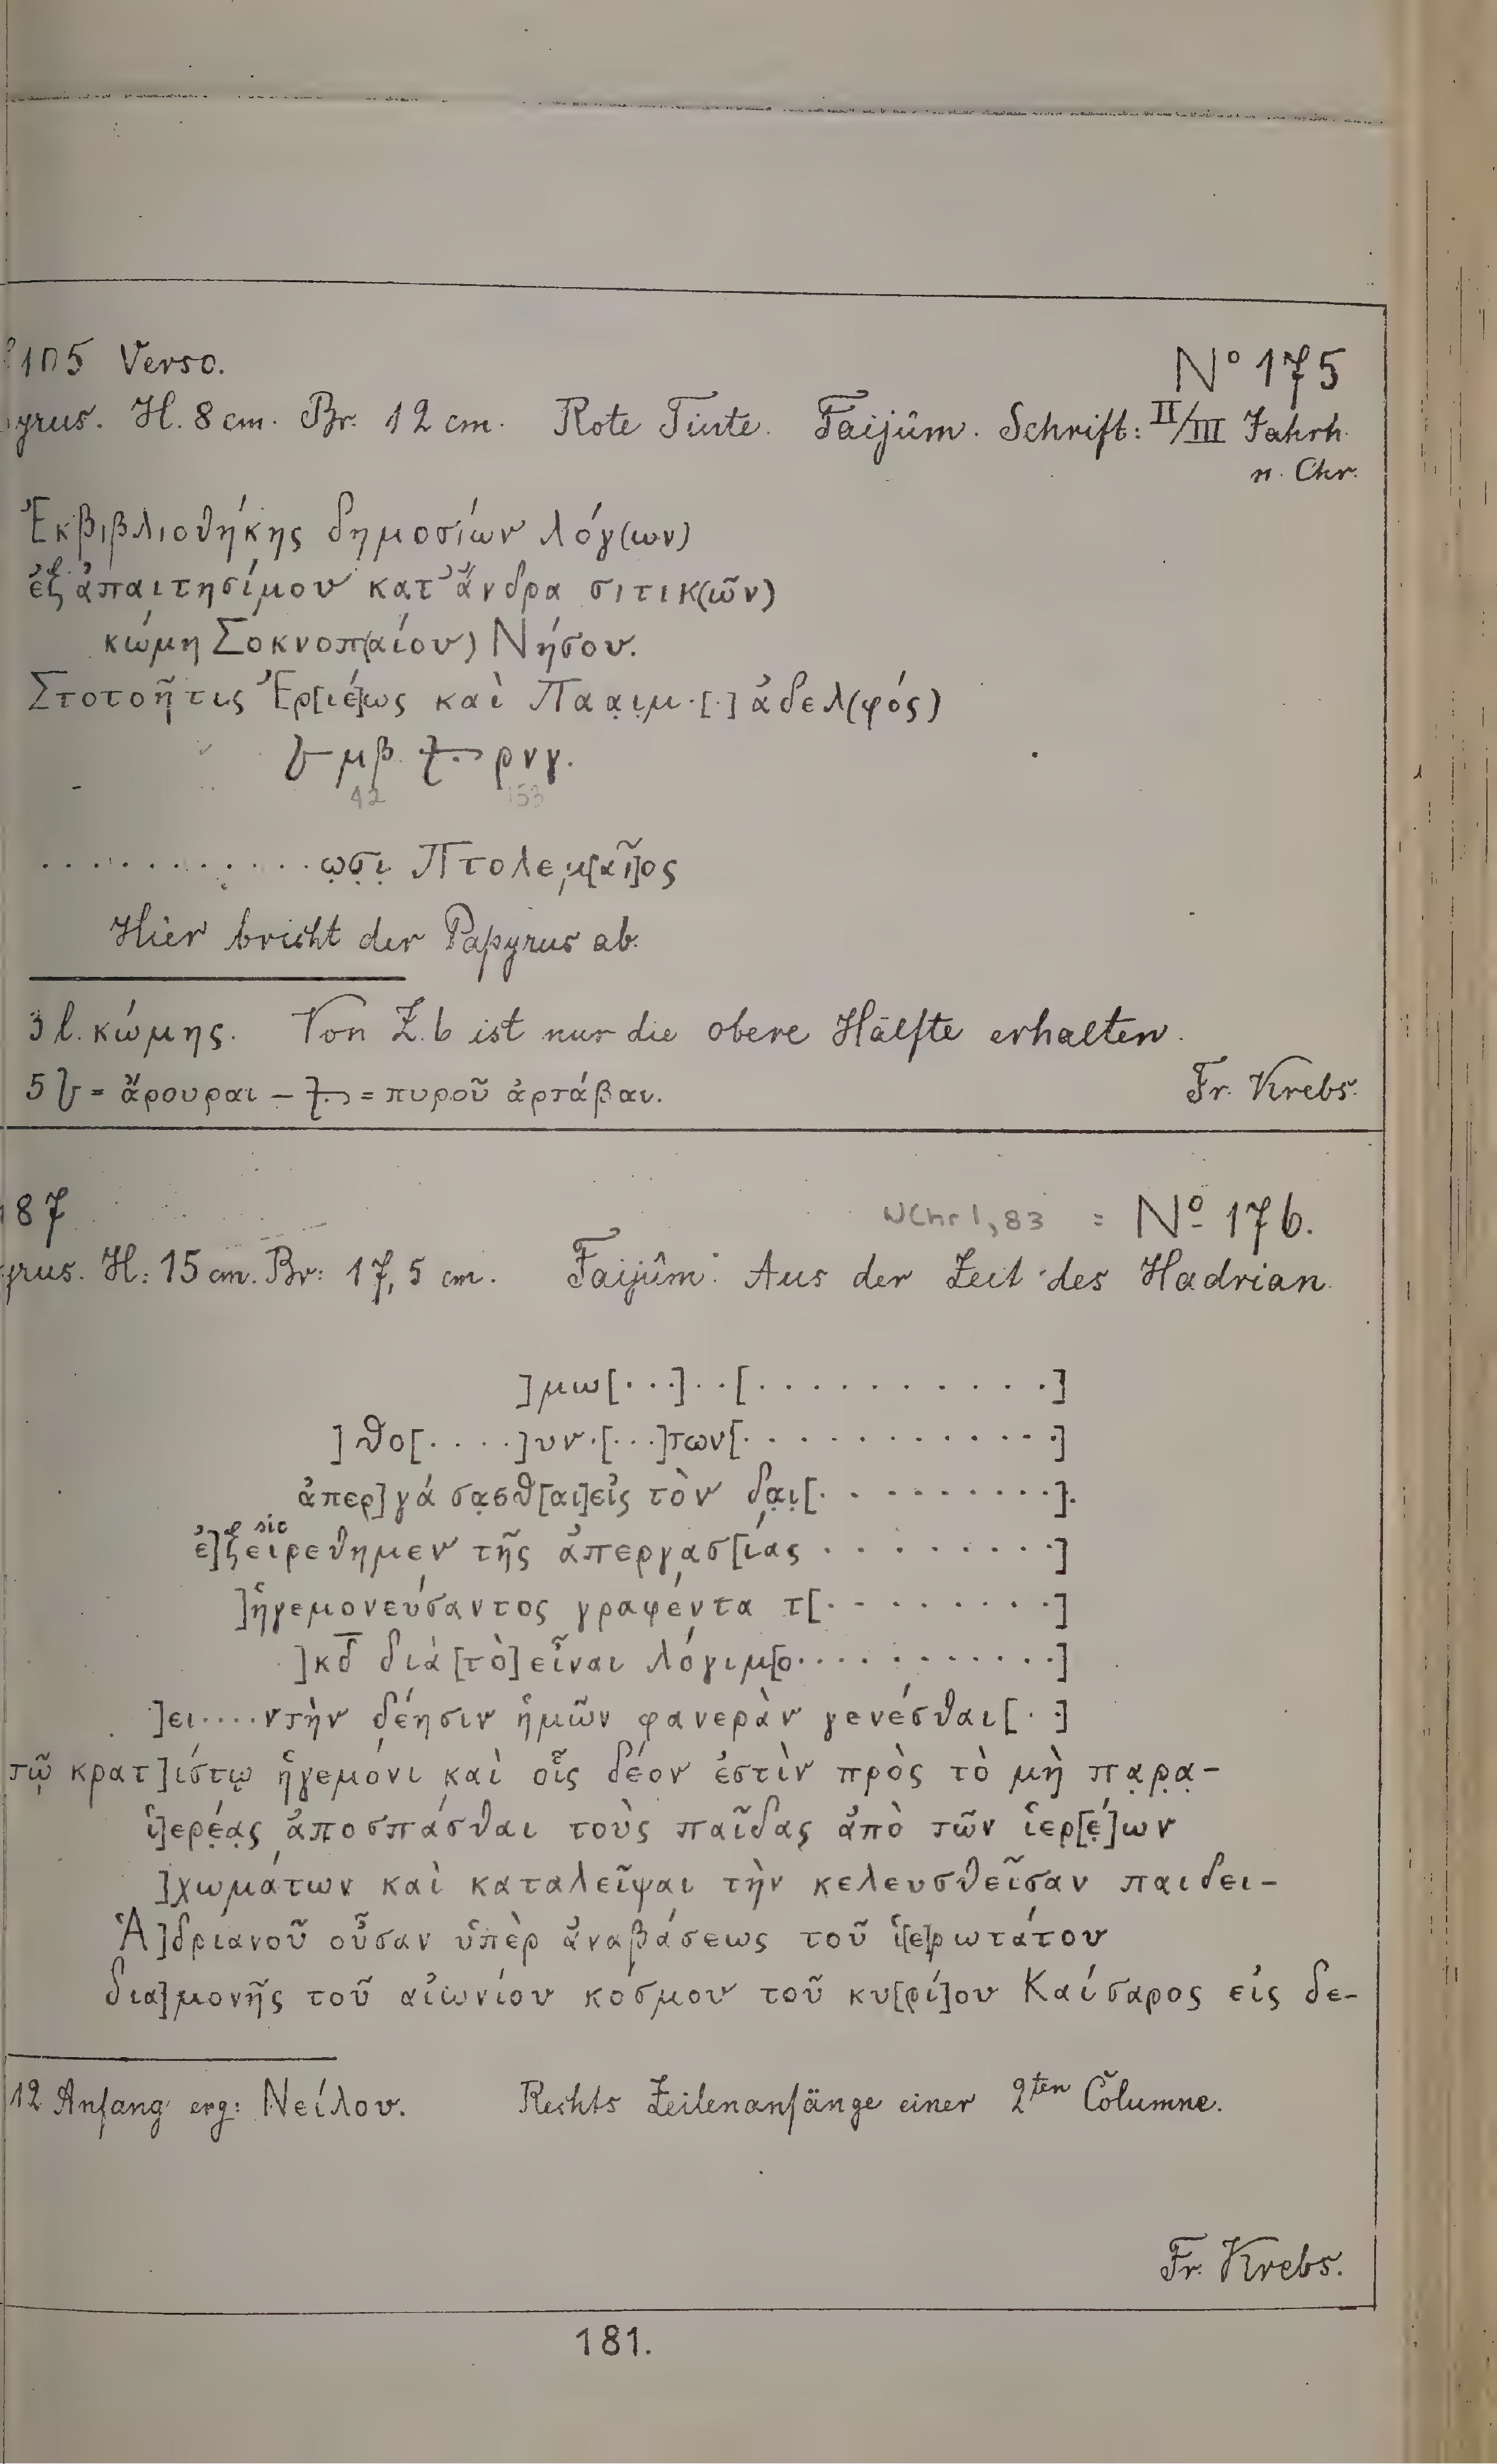 105 Verso.
N° 175
yrus. H. 8 cm. Br. 12 cm. Rote Tinte. Faijûm. Schrift: II/III Jahrh.
n. Chr.
Ἐκβιβλιοθήκης δημοσίων λόγ(ων)
ἐξ ἀπαιτησίμου κατ' ἄνδρα σιτικ(ῶν)
κώμη Σοκνοπ(αίου) Νήσου.
Στοτοῆτις Ἑρ[ιέ]ως καὶ Παạịμ·[·] ἀδελ(φός)
μβ ρνγ.
42 153
............ω̣σ̣ι̣ Πτολεμ̣[αῖ]ος
Hier bricht der Papyrus ab.
3 l. κώμης. Von Z. 6 ist nur die obere Hälfte erhalten.
5 = ἄρουραι – = πυροῦ ἀρτάβαι.
Fr. Krebs.
87
WChr 1, 83 = N° 176.
yrus. H: 15 cm. Br: 17,5 cm. Faijûm. Aus der Zeit des Hadrian.
]μω[...]..[...........]
]θο[....]υν.[...]των[............]
ἀπερ]γάσα̣σθ[αι]εἰς τὸν δα̣ι̣[..........].
sic
ἐ]ξειρεθημεν τῆς ἀπεργασ[ίας .........]
]ἡγεμονεύσαντος γραφέντα τ[.........]
]κδ̅ διὰ [τὸ] εἶναι λόγιμ[ο...........]
]ει....ν τὴν δέησιν ἡμῶν φανερὰν γενέσθαι[..]
τῷ κρατ]ίστῳ ἡγεμόνι καὶ οἷς δέον ἐστὶν πρὸς τὸ μὴ πα̣ρ̣α̣-
ἱ]ερέ̣α̣ς ἀποσπάσθαι τοὺς παῖδας ἀπὸ τῶν ἱερ[έ̣]ων
]χωμάτων καὶ καταλεῖψαι τὴν κελευσθεῖσαν παιδει-
Ἁ]δριανοῦ οὖσαν ὑπὲρ ἀναβάσεως τοῦ ἱ[ε]ρωτάτου
δια]μονῆς τοῦ αἰωνίου κόσμου τοῦ κυ[ρί]ου Καίσαρος εἰς δε-
12 Anfang erg: Νείλου. Rechts Zeilenanfänge einer 2ten Columne.
Fr. Krebs.
181.